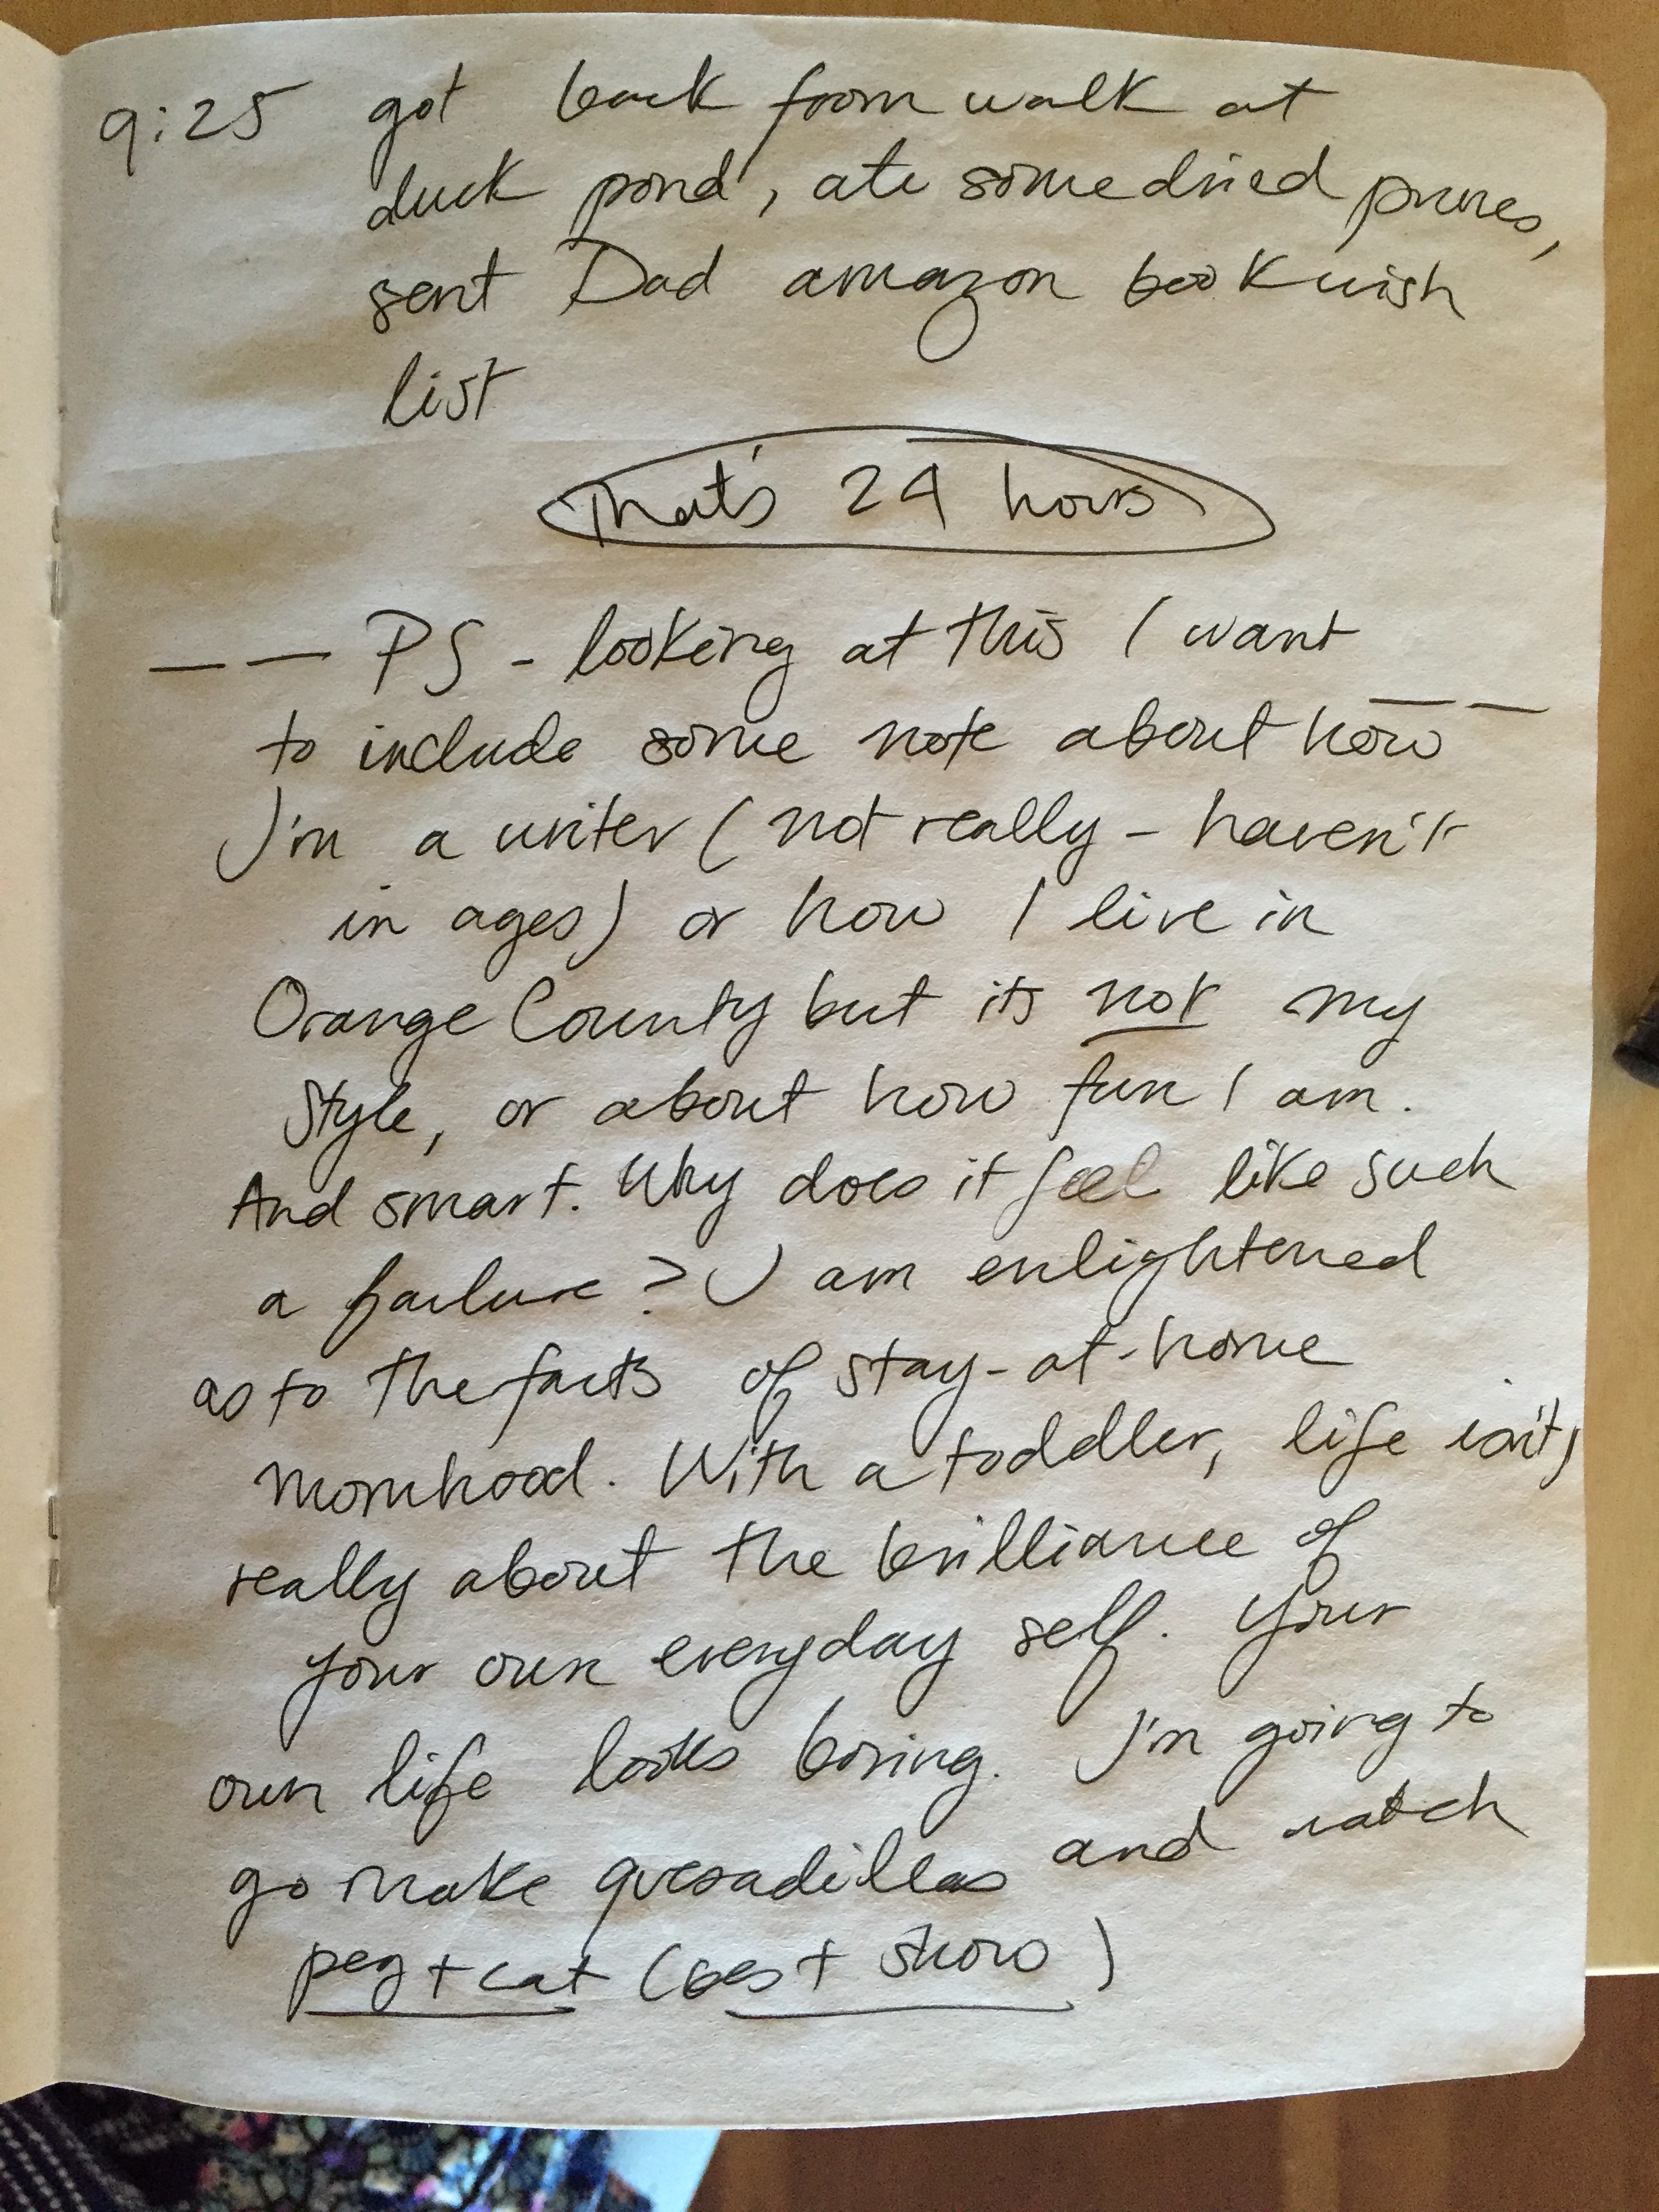 9:25 got back from walk at
duck pond, ate some dried prunes,
sent Dad amazon book wish
list
That's 24 hours
—— PS - looking at this I want
to include some note about how ——
I'm a writer (not really - haven't
in ages) or how I live in
Orange County but its not my
style, or about how fun I am.
And smart. Why does it feel like such
a failure? I am enlightened
as to the facts of stay-at-home
momhood. With a toddler, life isn't
really about the brilliance of
your own everyday self. Your
own life looks boring. I'm going to
go make quesadillas and watch
peg + cat (best show)